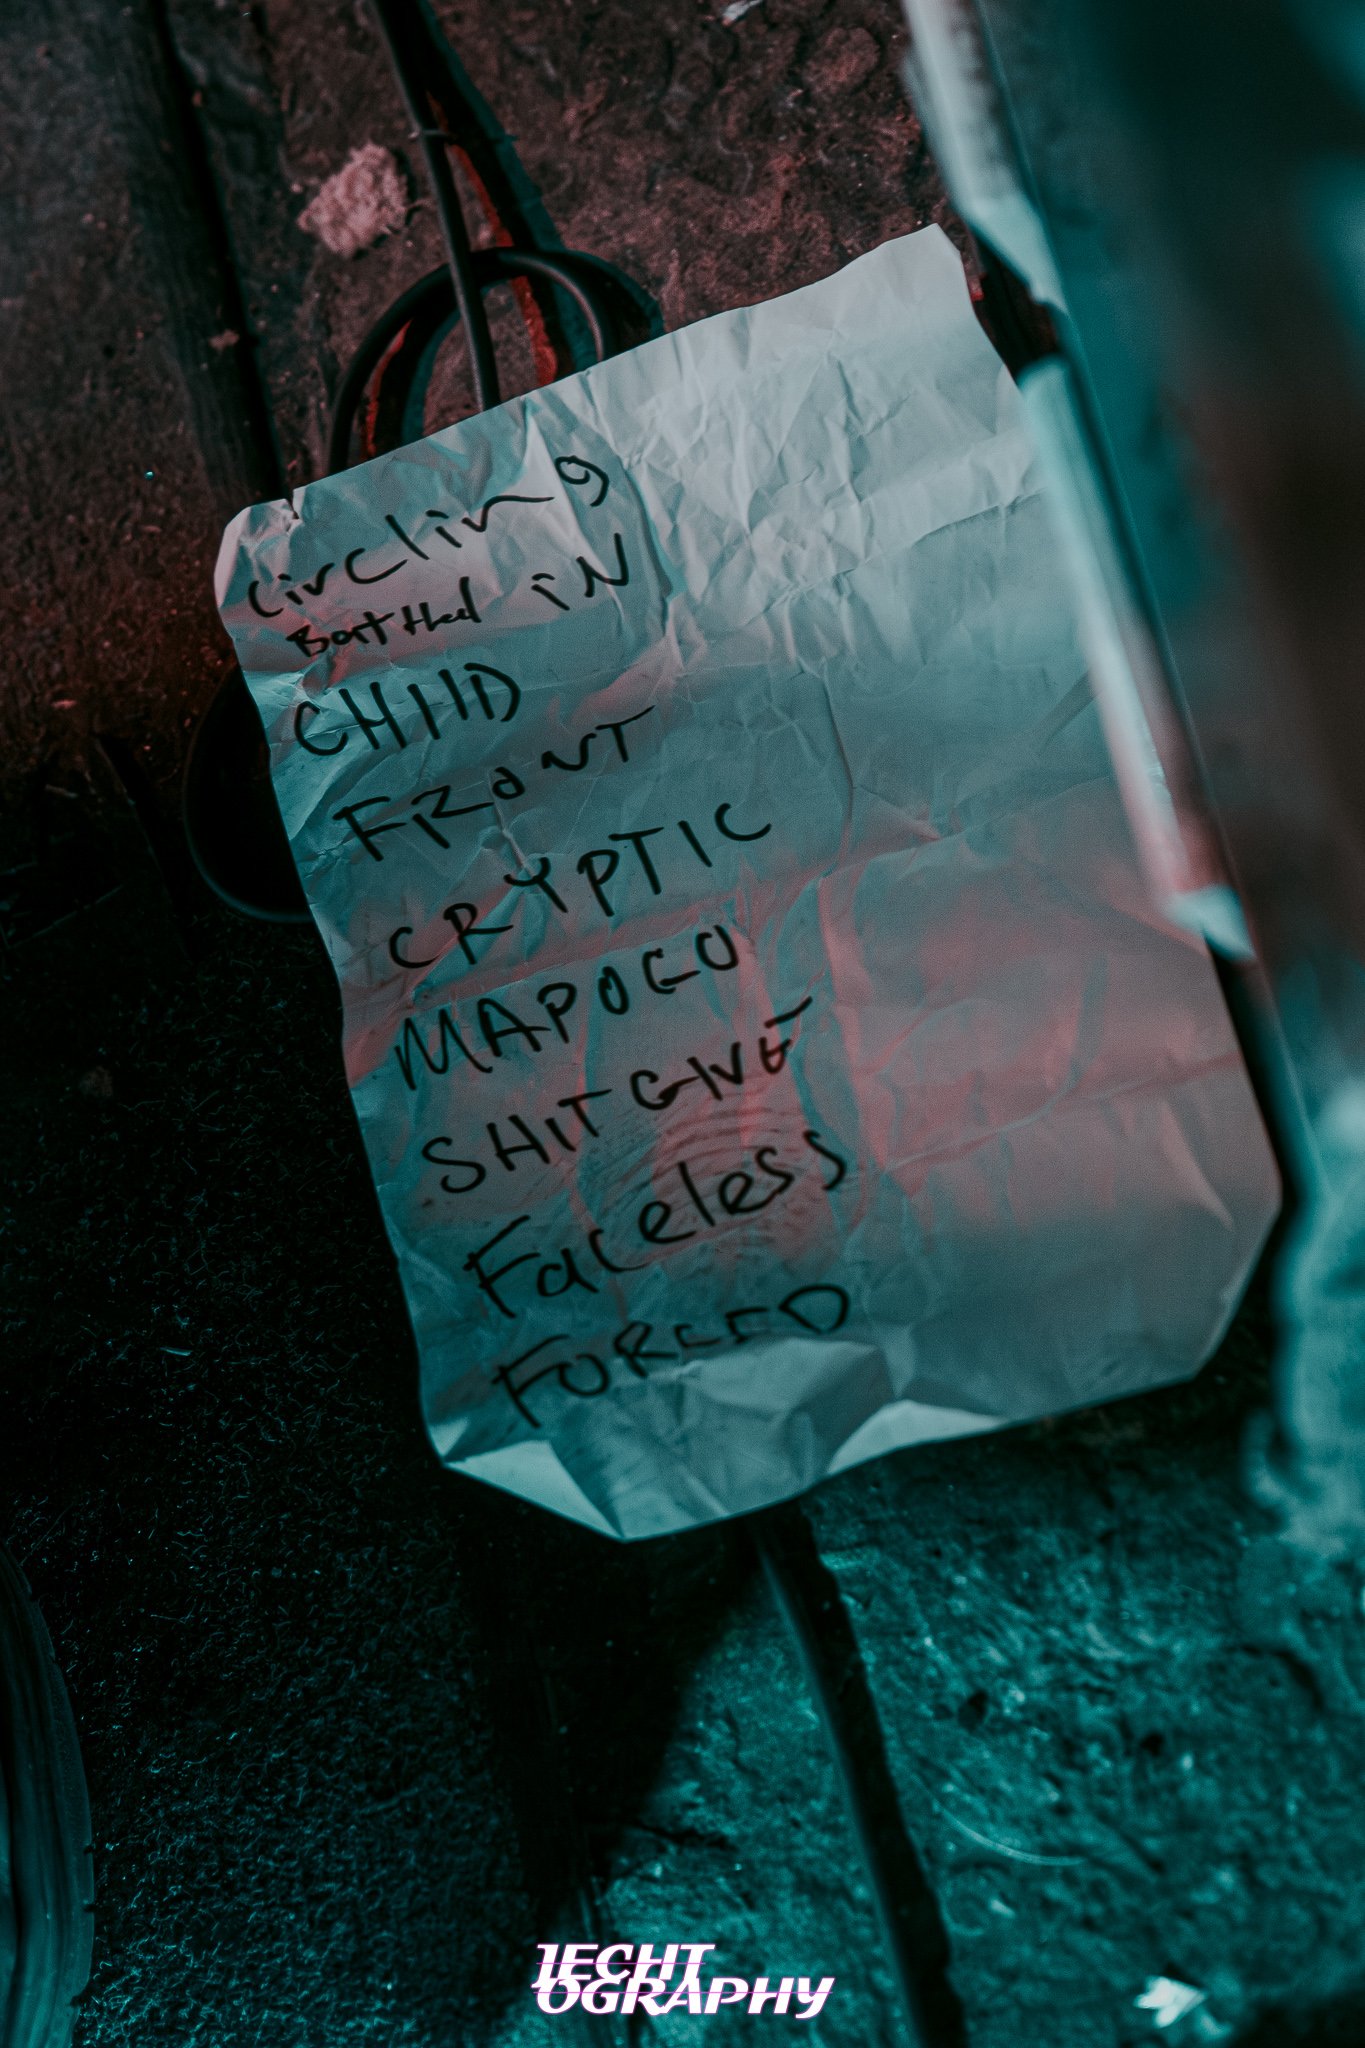 circling
Battled iN
CHIlD
FRONT
CRYPTIC
MAPOGO
SHIT GIVE
Faceless
FORCED
JECHT
OGRAPHY